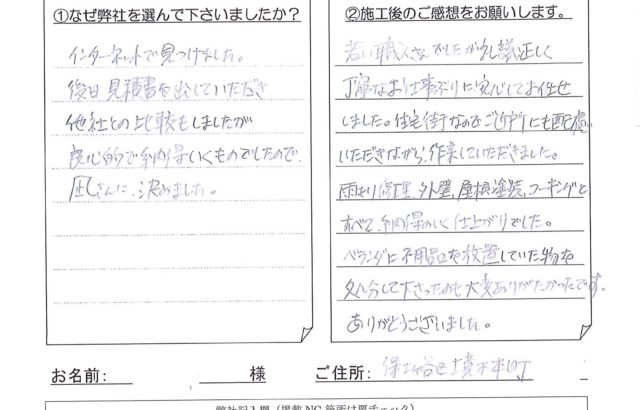 ①なぜ弊社を選んで下さいましたか？
インターネットで見つけました。
後日見積書を出していただき
他社との比較もしましたが
良心的で納得いくものでしたので、
凪さんに決めました。
②施工後のご感想をお願いします。
若い職人さんでしたが礼儀正しく
丁寧なお仕事ぶりに安心してお任せ
しました。住宅街なのでご近所にも配慮
いただきながら、作業していただきました。
雨もり修理、外壁、屋根塗装、コーキングと
すべて、納得のいく仕上がりでした。
ベランダに不用品を放置していた物を
処分して下さったのも大変ありがたかったです。
ありがとうございました。
お名前: 様
ご住所: 保土谷区境木本町
弊社記入欄（掲載NG箇所は要チェック）